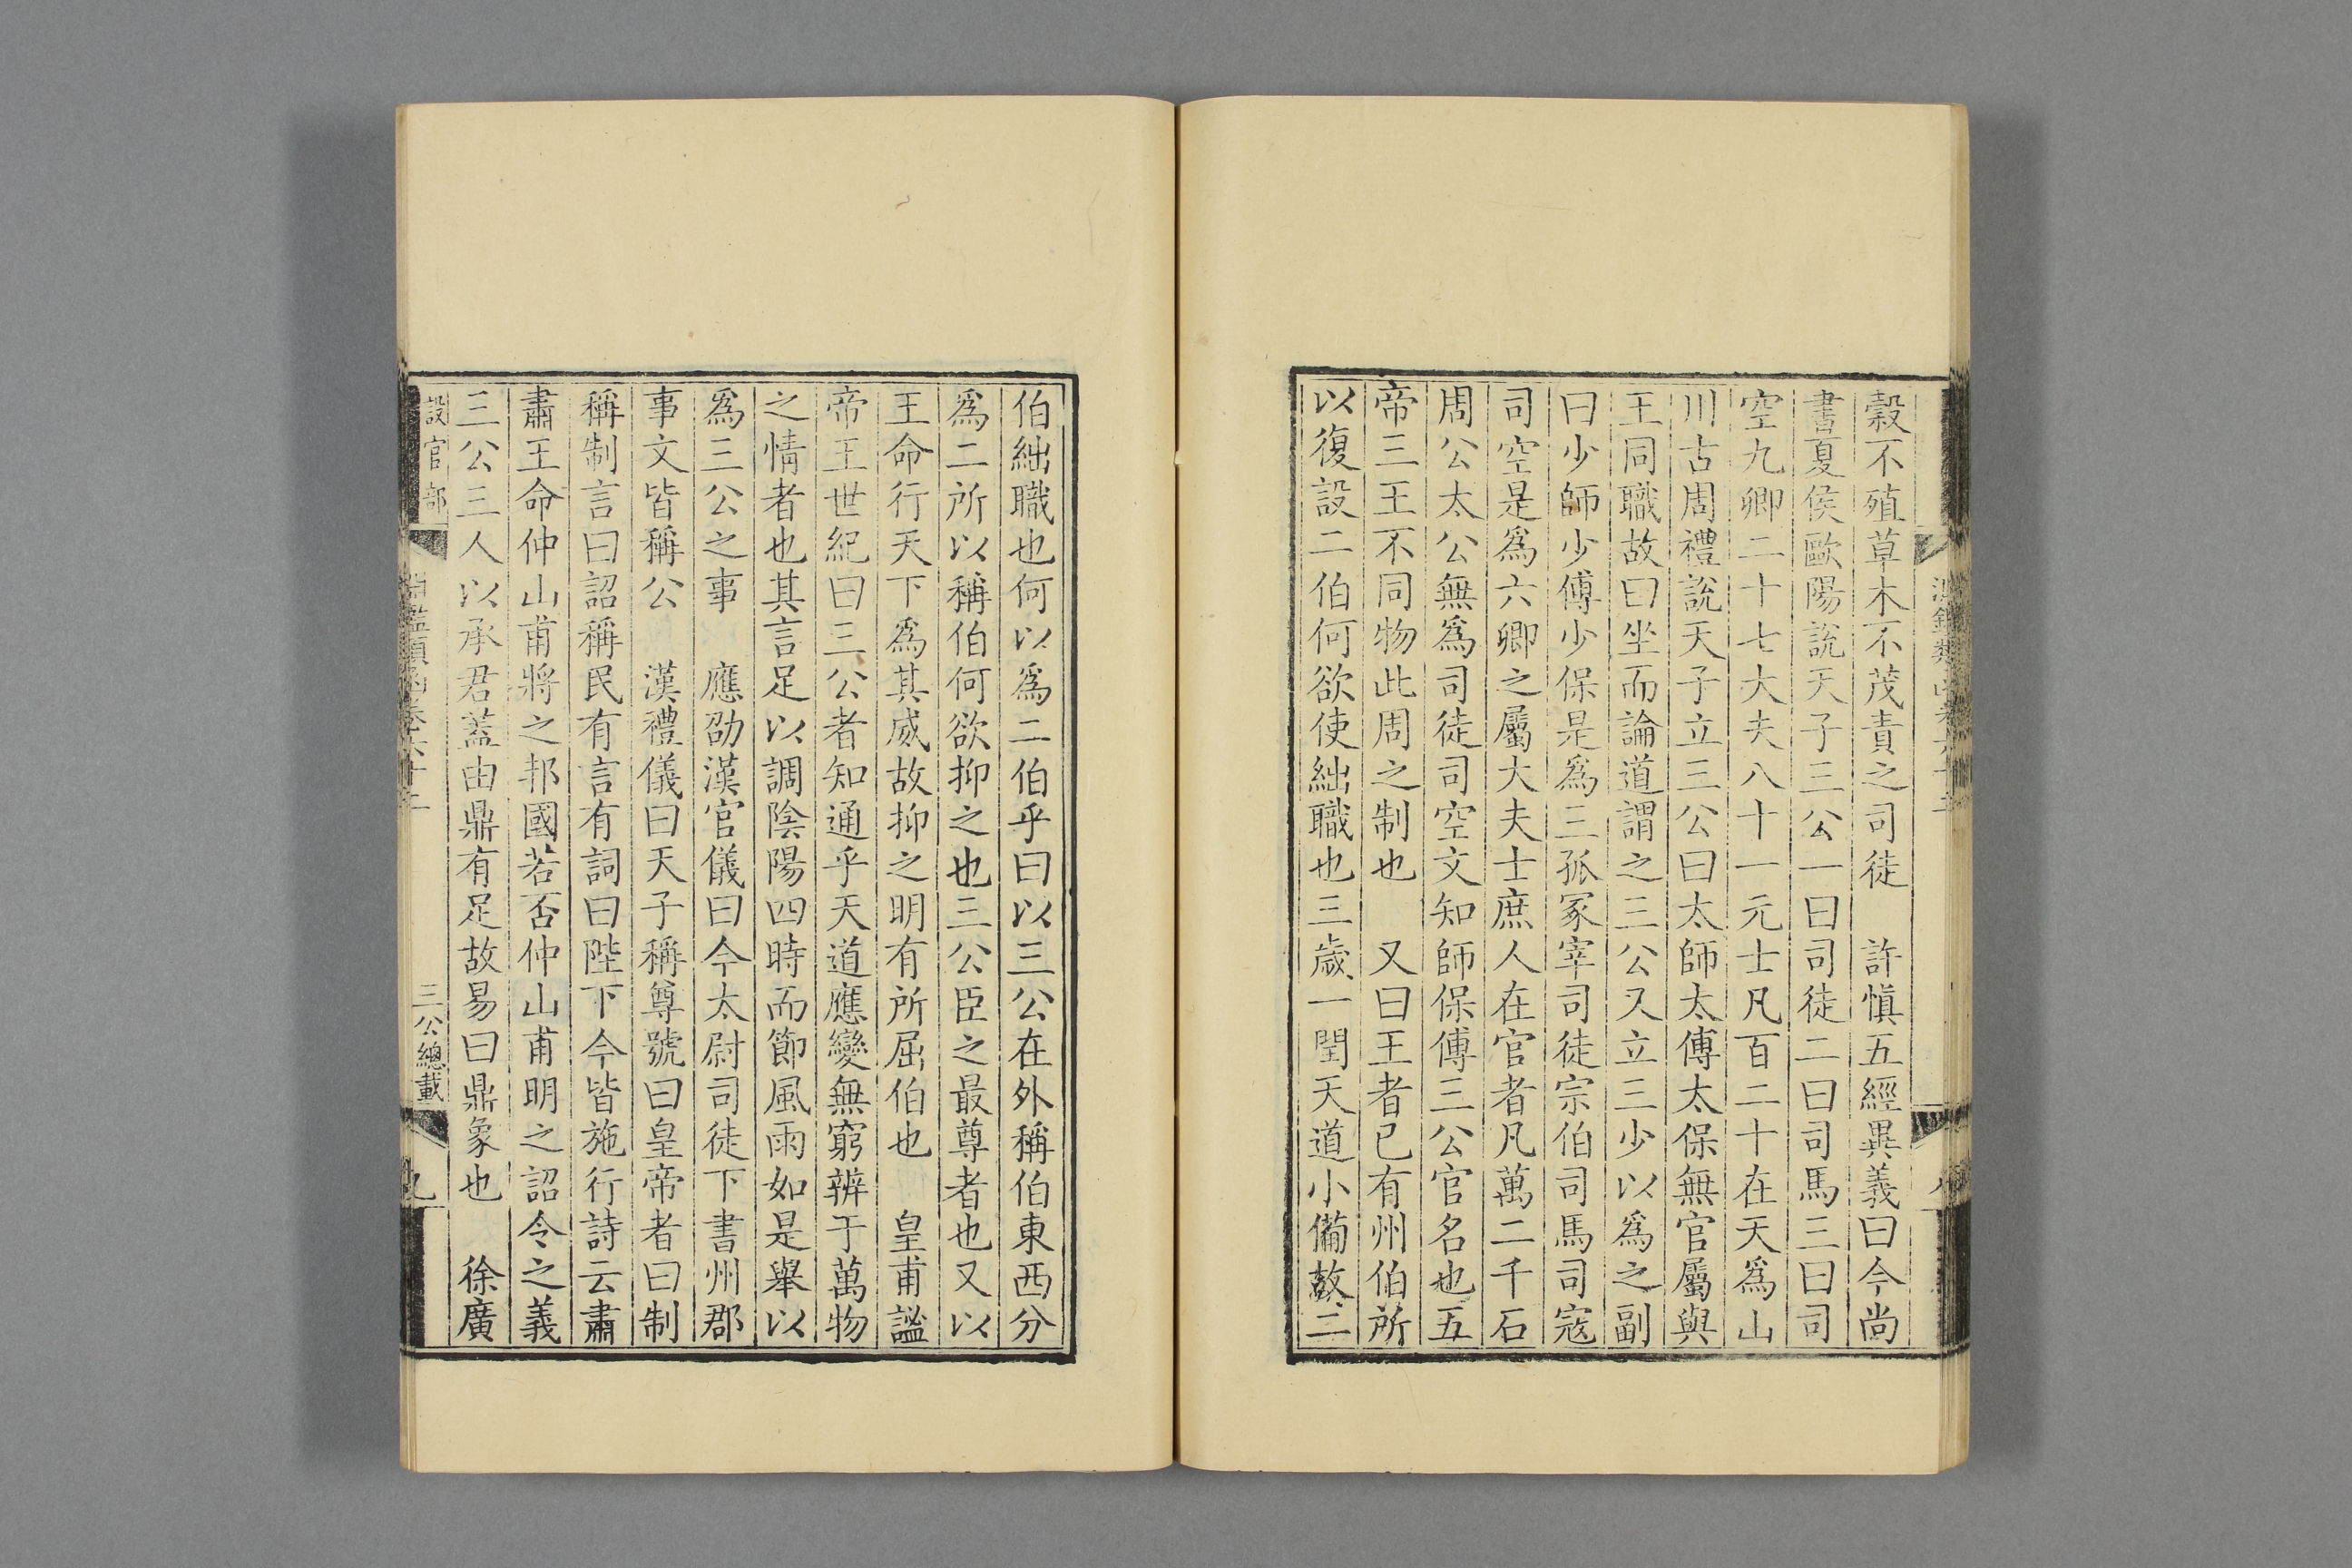 穀不殖草木不茂責之司徒　許愼五經異義曰今尚
書夏侯歐陽說天子三公一曰司徒二曰司馬三曰司
空九卿二十七大夫八十一元士凡百二十在天爲山
川古周禮說天子立三公曰太師太傅太保無官屬與
王同職故曰坐而論道謂之三公又立三少以爲之副
曰少師少傅少保是爲三孤冢宰司徒宗伯司馬司寇
司空是爲六卿之屬大夫士庶人在官者凡萬二千石
周公太公無爲司徒司空文知師保傅三公官名也五
帝三王不同物此周之制也　又曰王者已有州伯所
以復設二伯何欲使絀職也三歲一閏天道小備故二
伯絀職也何以爲二伯乎曰以三公在外稱伯東西分
爲二所以稱伯何欲抑之也三公臣之最尊者也又以
王命行天下爲其威故抑之明有所屈伯也　皇甫謐
帝王世紀曰三公者知通乎天道應變無窮辨于萬物
之情者也其言足以調陰陽四時而節風雨如是舉以
爲三公之事　應劭漢官儀曰今太尉司徒下書州郡
事文皆稱公　漢禮儀曰天子稱尊號曰皇帝者曰制
稱制言曰詔稱民有言有詞曰陛下今皆施行詩云肅
肅王命仲山甫將之邦國若否仲山甫明之詔令之義
三公三人以承君蓋由鼎有足故易曰鼎象也　徐廣
設官部
三公總載
九